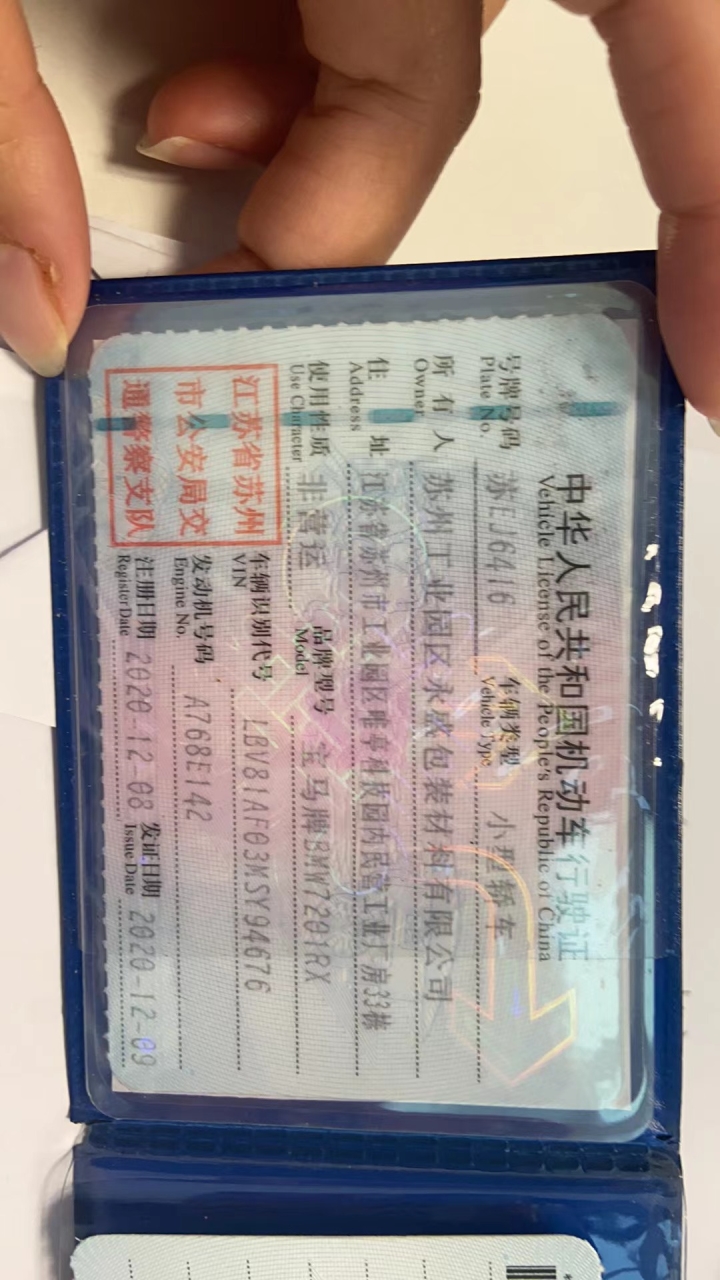 中华人民共和国机动车行驶证
Vehicle License of the People's Republic of China
号牌号码 苏EJ6416 车辆类型 小型轿车
Plate No. Vehicle Type
所有人 苏州工业园区永盛包装材料有限公司
Owner
住址 江苏省苏州市工业园区唯亭科技园内民营工业厂房33栋
Address
使用性质 非营运 品牌型号 宝马牌BMW7201RX
Use Character Model
江苏省苏州
市公安局交
通警察支队
车辆识别代号 LBV81AF03MSY94676
VIN
发动机号码 A768E142
Engine No.
注册日期 2020-12-08 发证日期 2020-12-09
Register Date Issue Date